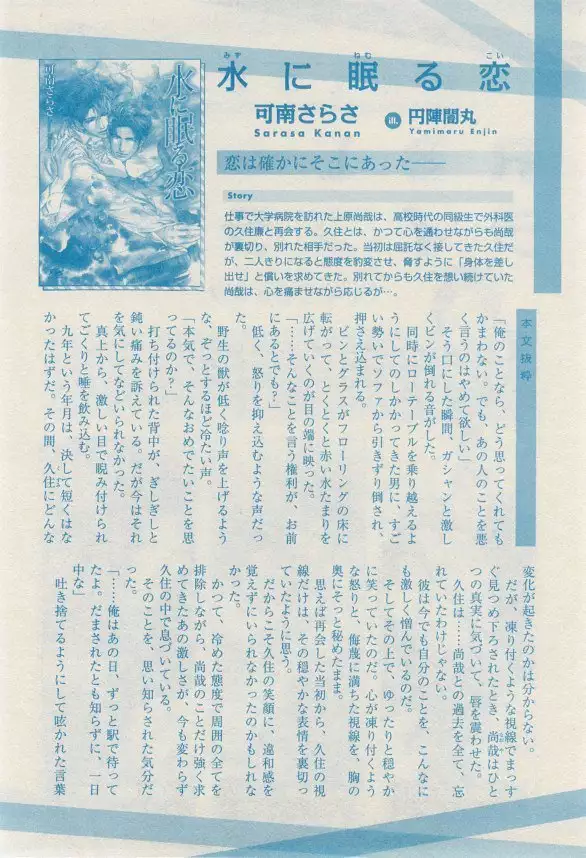 水に眠る恋
みず ねむ こい
可南さらさ
Sarasa Kanan
ill.
円陣闇丸
Yamimaru Enjin
可南さらさ
水に眠る恋
恋は確かにそこにあった──
Story
仕事で大学病院を訪れた上原尚哉は、高校時代の同級生で外科医
の久住廉と再会する。久住とは、かつて心を通わせながらも尚哉
が裏切り、別れた相手だった。当初は屈託なく接してきた久住だ
が、二人きりになると態度を豹変させ、脅すように「身体を差し
出せ」と償いを求めてきた。別れてからも久住を想い続けていた
尚哉は、心を痛ませながら応じるが…。
本文抜粋
「俺のことなら、どう思ってくれても
かまわない。でも、あの人のことを悪
く言うのはやめて欲しい」
そう口にした瞬間、ガシャンと激し
くビンが倒れる音がした。
同時にローテーブルを乗り越えるよ
うにしてのしかかってきた男に、すご
い勢いでソファから引きずり倒され、
押さえ込まれる。
ビンとグラスがフローリングの床に
転がって、とくとくと赤い水たまりを
広げていくのが目の端に映った。
「……そんなことを言う権利が、お前
にあるとでも?」
低く、怒りを抑え込むような声だっ
た。
野生の獣が低く唸り声を上げるよう
な、ぞっとするほど冷たい声。
「本気で、そんなおめでたいことを思
ってるのか?」
打ち付けられた背中が、ぎしぎしと
鈍い痛みを訴えている。だが今はそれ
を気にしてなどいられなかった。
真上から、激しい目で睨み付けられ
てごくりと唾を飲み込む。
九年という年月は、決して短くはな
かったはずだ。その間、久住にどんな
変化が起きたのかは分からない。
だが、凍り付くような視線でまっす
ぐ見つめ下ろされたとき、尚哉はひと
つの真実に気づいて、唇を震わせた。
久住は……尚哉との過去を全て、忘
れていたわけじゃない。
彼は今でも自分のことを、こんなに
も激しく憎んでいるのだ。
そしてその上で、ゆったりと穏やか
に笑っていたのだ。心が凍り付くよう
な怒りと、侮蔑に満ちた視線を、胸の
奥にそっと秘めたまま。
思えば再会した当初から、久住の視
線だけは、その穏やかな表情を裏切っ
ていたように思う。
だからこそ久住の笑顔に、違和感を
覚えずにいられなかったのかもしれな
かった。
かつて、冷めた態度で周囲の全てを
排除しながら、尚哉のことだけ強く求
めてきたあの激しさが、今も変わらず
久住の中で息づいている。
そのことを、思い知らされた気分だ
った。
「……俺はあの日、ずっと駅で待って
たよ。だまされたとも知らずに、一日
中な」
吐き捨てるようにして呟かれた言葉